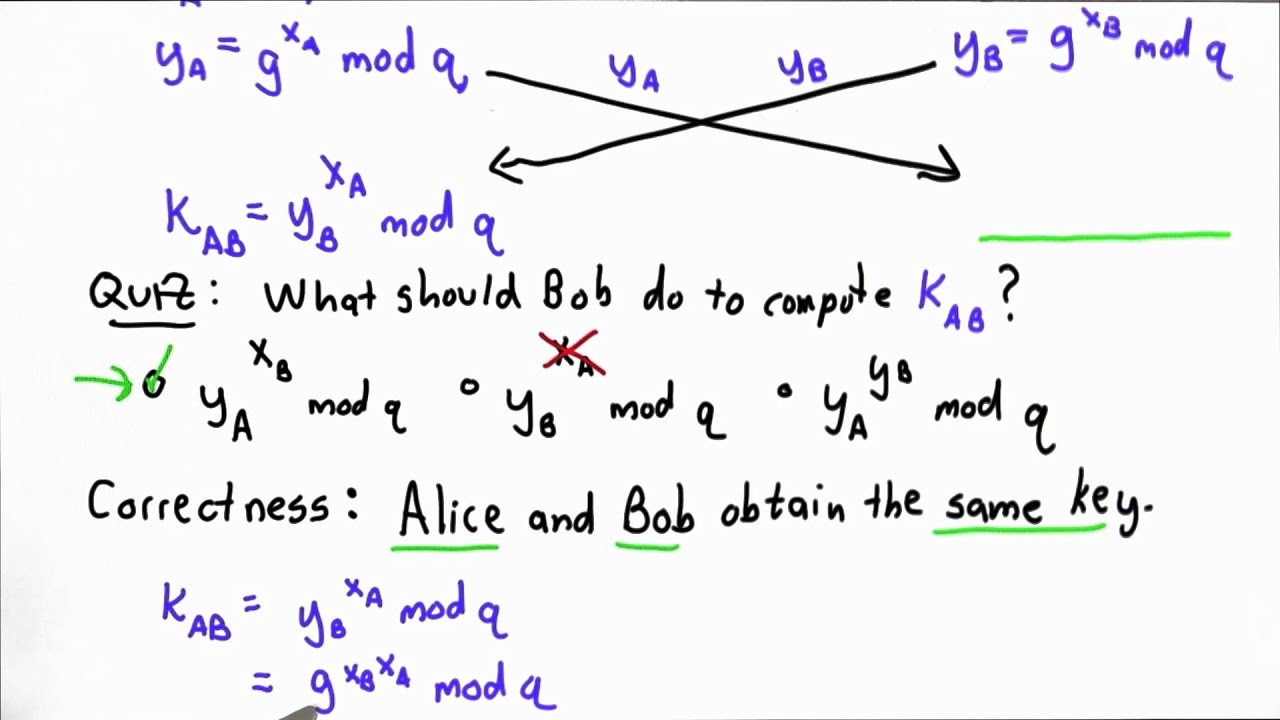 y_A = g^{x_A} mod q y_A y_B y_B = g^{x_B} mod q
K_AB = y_B^{x_A} mod q
Quiz: What should Bob do to compute K_AB?
y_A^{x_B} mod q y_B^{x_A} mod q y_A^{y_B} mod q
Correctness: Alice and Bob obtain the same key.
K_AB = y_B^{x_A} mod q
= g^{x_B^{x_A}} mod q